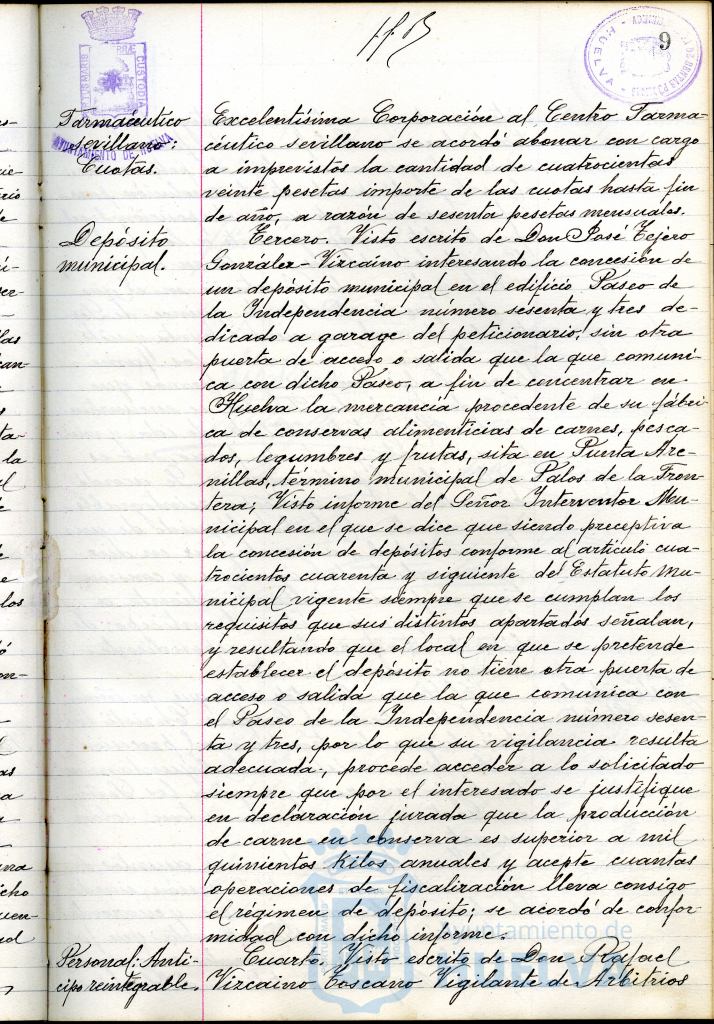 9
HUELVA
AYUNTAMIENTO DE HUELVA
Farmacéutico
sevillano:
Cuotas.
Excelentísima Corporación al Centro Farma-
céutico sevillano se acordó abonar con cargo
a imprevistos la cantidad de cuatrocientas
veinte pesetas importe de las cuotas hasta fin
de año, a razón de sesenta pesetas mensuales.
Depósito
municipal.
Tercero. Visto escrito de Don José Tejero
González-Vizcaino interesando la concesión de
un depósito municipal en el edificio Paseo de
la Independencia número sesenta y tres de-
dicado a garage del peticionario, sin otra
puerta de acceso o salida que la que comuni-
ca con dicho Paseo, a fin de concentrar en
Huelva la mercancía procedente de su fábri-
ca de conservas alimenticias de carnes, pesca-
dos, legumbres y frutas, sita en Punta Are-
nillas, término municipal de Palos de la Fron-
tera; Visto informe del Señor Interventor Mu-
nicipal en el que se dice que siendo preceptiva
la concesión de depósitos conforme al artículo cua-
trocientos cuarenta y siguiente del Estatuto Mu-
nicipal vigente siempre que se cumplan los
requisitos que sus distintos apartados señalan,
y resultando que el local en que se pretende
establecer el depósito no tiene otra puerta de
acceso o salida que la que comunica con
el Paseo de la Independencia número sesen-
ta y tres, por lo que su vigilancia resulta
adecuada, procede acceder a lo solicitado
siempre que por el interesado se justifique
en declaración jurada que la producción
de carne en conserva es superior a mil
quinientos kilos anuales y acepte cuantas
operaciones de fiscalización lleva consigo
el régimen de depósito; se acordó de confor-
midad con dicho informe.
Personal: Anti-
cipo reintegrable.
Cuarto. Visto escrito de Don Rafael
Vizcaino Toscano Vigilante de Arbitrios
Ayuntamiento de
HUELVA